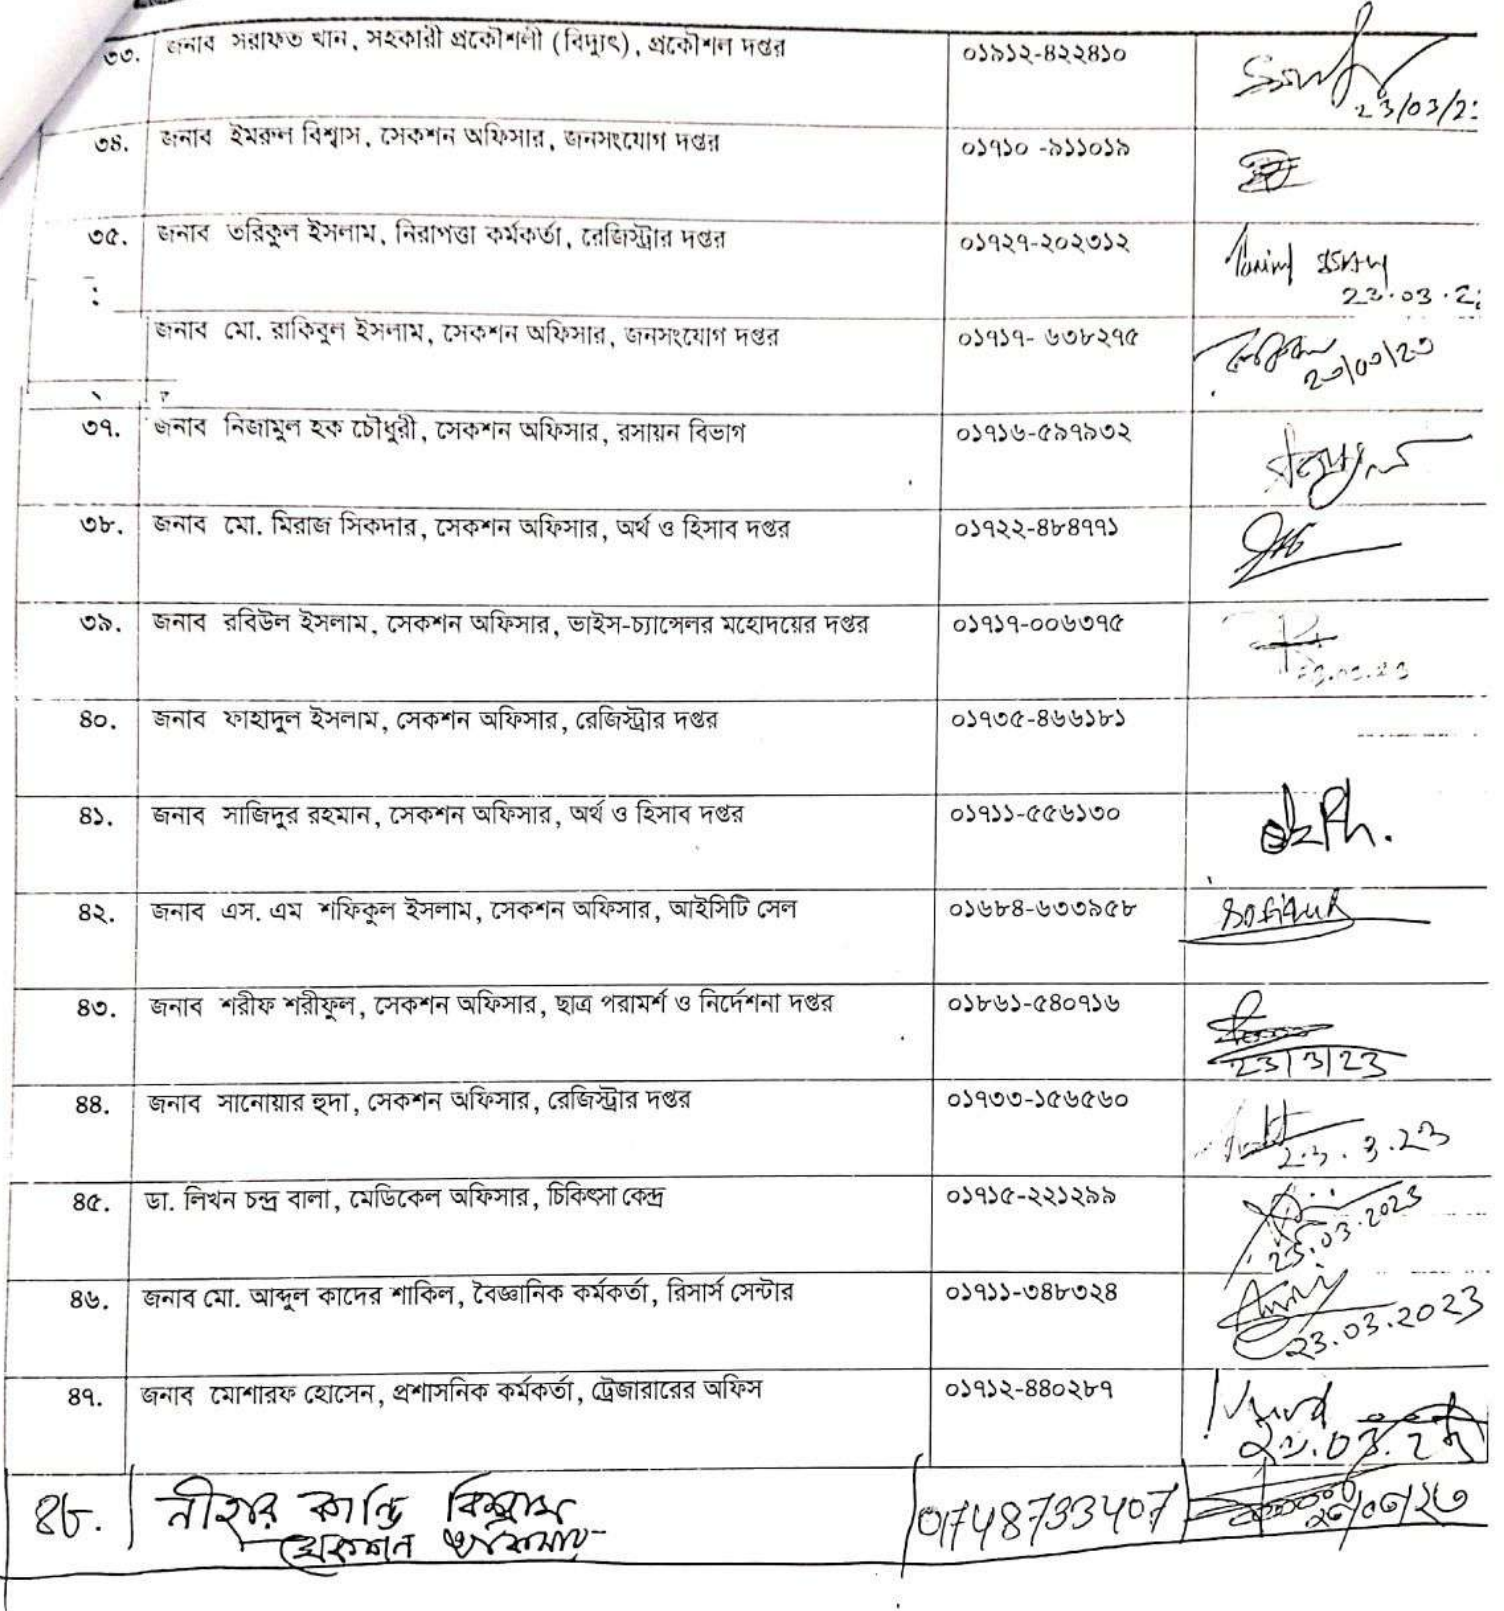 ৩৩. জনাব সরাফত খান, সহকারী প্রকৌশলী (বিদ্যুৎ), প্রকৌশল দপ্তর ০১৯১২-৪২২৪১০
23/03/2
৩৪. জনাব ইমরুল বিশ্বাস, সেকশন অফিসার, জনসংযোগ দপ্তর ০১৭১০ -৯১১০১৯
৩৫. জনাব তরিকুল ইসলাম, নিরাপত্তা কর্মকর্তা, রেজিস্ট্রার দপ্তর ০১৭২৭-২০২৩১২
23.03.2
জনাব মো. রাকিবুল ইসলাম, সেকশন অফিসার, জনসংযোগ দপ্তর ০১৭১৭- ৬৩৮২৭৫
২৩/০৩/২৩
৩৭. জনাব নিজামুল হক চৌধুরী, সেকশন অফিসার, রসায়ন বিভাগ ০১৭১৬-৫৯৭৯৩২
৩৮. জনাব মো. মিরাজ সিকদার, সেকশন অফিসার, অর্থ ও হিসাব দপ্তর ০১৭২২-৪৮৪৭৭১
৩৯. জনাব রবিউল ইসলাম, সেকশন অফিসার, ভাইস-চ্যান্সেলর মহোদয়ের দপ্তর ০১৭১৭-০০৬৩৭৫
৪০. জনাব ফাহাদুল ইসলাম, সেকশন অফিসার, রেজিস্ট্রার দপ্তর ০১৭৩৫-৪৬৬১৮১
৪১. জনাব সাজিদুর রহমান, সেকশন অফিসার, অর্থ ও হিসাব দপ্তর ০১৭১১-৫৫৬১৩০
৪২. জনাব এস. এম শফিকুল ইসলাম, সেকশন অফিসার, আইসিটি সেল ০১৬৮৪-৬৩৩৯৫৮
৪৩. জনাব শরীফ শরীফুল, সেকশন অফিসার, ছাত্র পরামর্শ ও নির্দেশনা দপ্তর ০১৮৬১-৫৪০৭১৬
23/3/23
৪৪. জনাব সানোয়ার হুদা, সেকশন অফিসার, রেজিস্ট্রার দপ্তর ০১৭৩৩-১৫৬৫৬০
23.3.23
৪৫. ডা. লিখন চন্দ্র বালা, মেডিকেল অফিসার, চিকিৎসা কেন্দ্র ০১৭১৫-২২১২৯৯
23.03.2023
৪৬. জনাব মো. আব্দুল কাদের শাকিল, বৈজ্ঞানিক কর্মকর্তা, রিসার্স সেন্টার ০১৭১১-৩৪৮৩২৪
23.03.2023
৪৭. জনাব মোশারফ হোসেন, প্রশাসনিক কর্মকর্তা, ট্রেজারারের অফিস ০১৭১২-৪৪০২৮৭
৪৮. নীহার কান্তি বিশ্বাস 01748733407 ২৩/০৩/২৩
সেকশন অফিসার